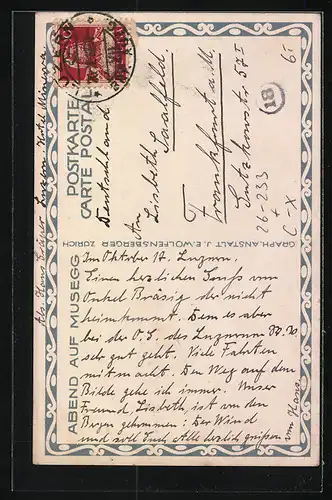 POSTKARTE
CARTE POSTALE
Deutschland
An
Lisbeth Saalfeld.
Frankfurt a. M.
57 I
61
18
26-233
+
C-X
GRAPH. ANSTALT J.E. WOLFENSBERGER ZÜRICH
ABEND AUF MUSEGG
Im Oktober 17. Luzern.
Einen herzlichen Gruß vom
Onkel Bräsig der nicht
heimkommt. Dem es aber
bei der O.S. des Luzerner
sehr gut geht. Viele Fahrten
mitmacht. Den Weg auf dem
Bilde gehe ich immer. Unser
Freund, Lisbeth, ist von den
Bergen gekommen: Der Wind
und soll Euch Alle herzlich grüßen
von Hans.
Abs. Hans Luzern Hotel